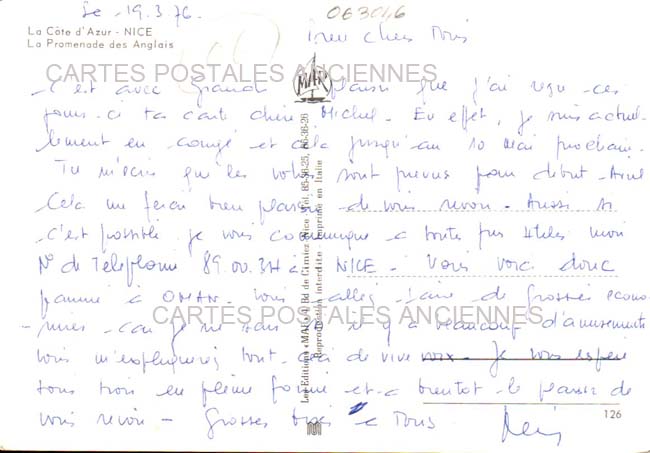 Le - 19.3.76.
063046
La Côte d'Azur - NICE
La Promenade des Anglais
bien chers Tous
CARTES POSTALES ANCIENNES
MAR
C'est avec grand plaisir que j'ai reçu ces
jours-ci ta carte cher Michel. En effet, je suis actuel-
lement en congé et cela jusqu'au 10 mai prochain.
Tu m'écris que les vols sont prévus pour début-Avril
Cela me ferai bien plaisir de vous revoir - Aussi si
c'est possible je vous communique à toutes fins utiles mon
N° de Téléphone 89.00.34 à NICE - Vous voici donc
à OMAN - Vous allez faire de grosses écono-
mies - car je ne sais s'il y a beaucoup d'amusements
vous m'expliquerez tout cela de vive voix - Je vous espère
tous trois en pleine forme et à bientôt le plaisir de
vous revoir - Grosses bises à Tous
CARTES POSTALES ANCIENNES
Les Editions «MAR», Bd de Cimiez, Nice
Reproduction interdite Imprimé en Italie
126